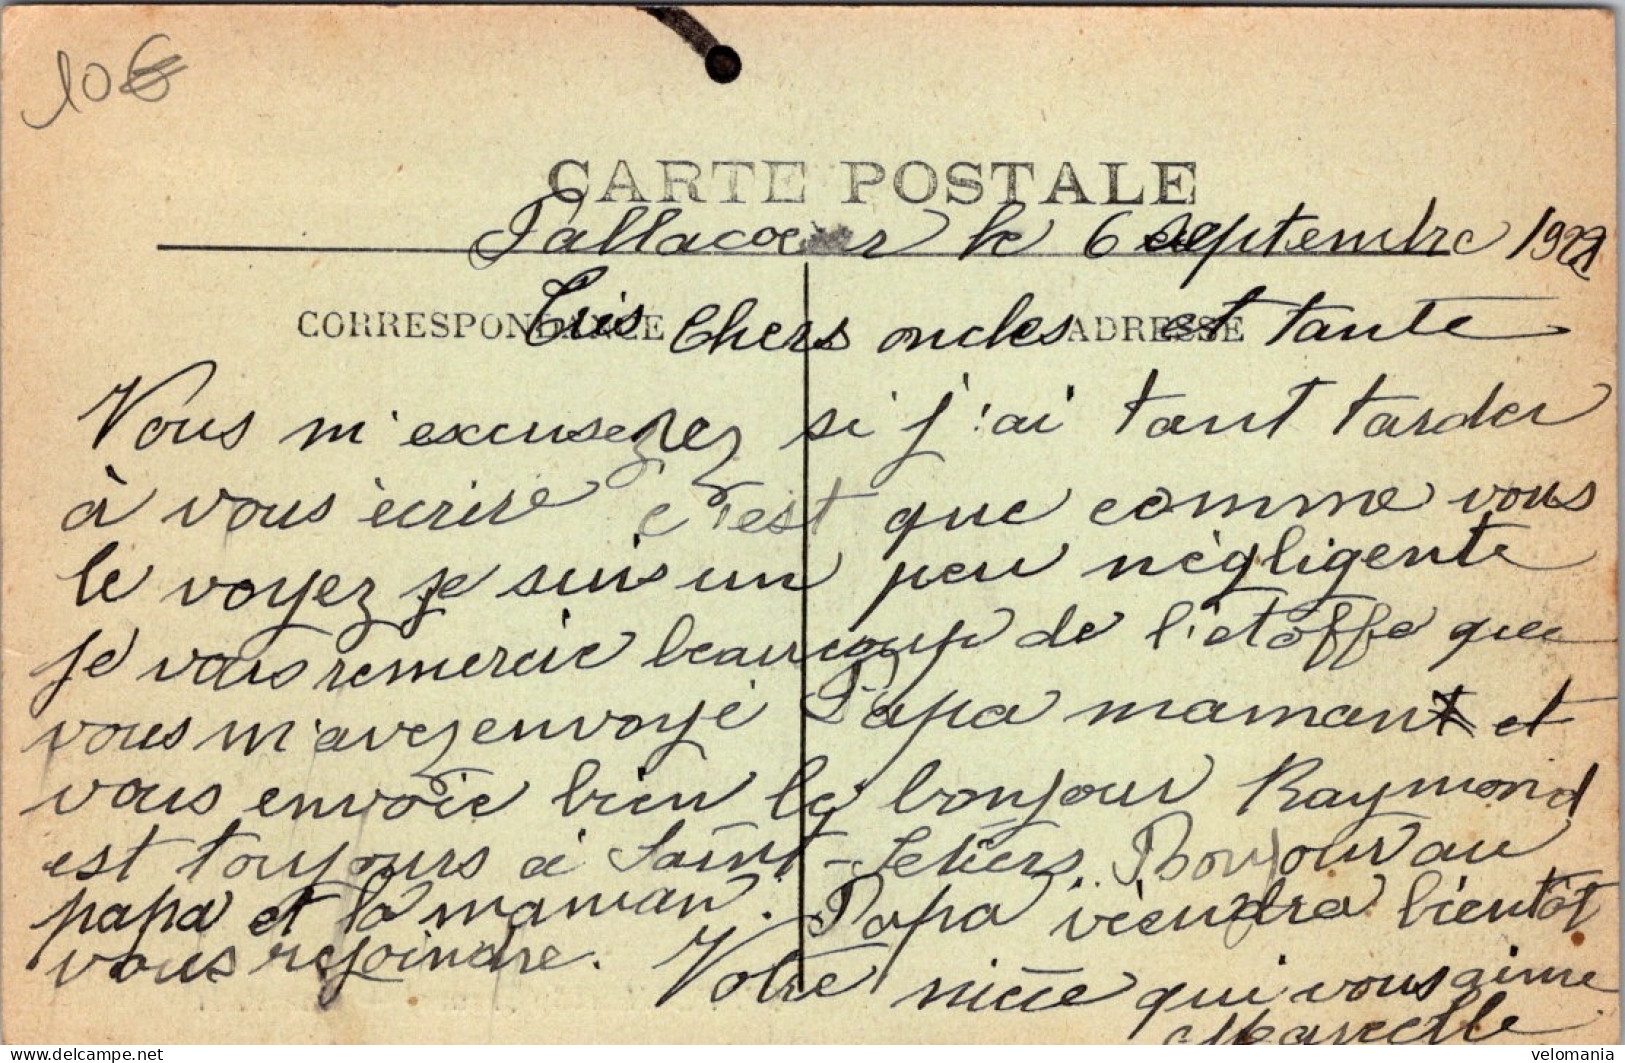 10€
CARTE POSTALE
le 6 septembre 1922
CORRESPONDANCE ADRESSE
Très Chers oncles et tante
Vous m'excuserez si j'ai tant tarder
à vous ècrire c'est que comme vous
le voyez je suis un peu nègligente
je vous remercie beaucoup de l'etoffe que
vous m'avez envoyé Papa maman et
vous envoie bien le bonjour Raymond
est toujours à Saint- Bonjour au
papa et la maman. Papa viendra bientôt
vous rejoindre. Votre nièce qui vous aime
Marcelle
velomania